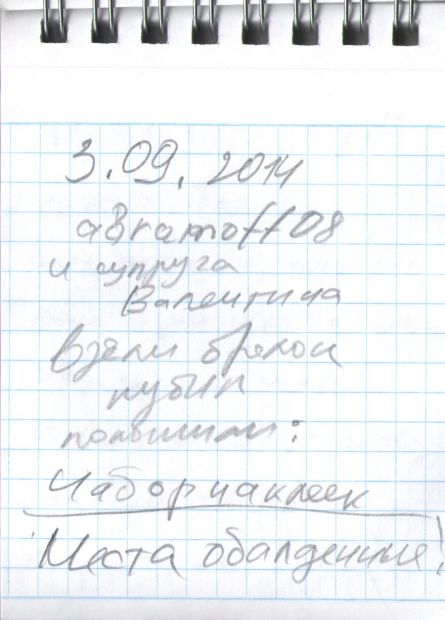 3.09.2014
avramoff08
и супруга
Валентина
Взяли брелок
рубин
положили:
Набор наклеек
Места обалденные!